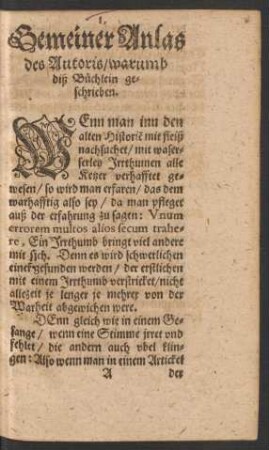 1.
Gemeiner Anlas
des Autoris/warumb
diß Büchlein ge-
schrieben.
WEnn man inn den
alten Historiẽ mit fleiß
nachsuchet/ mit waser-
serley Irrthumen alle
Ketzer verhafftet ge-
wesen/ so wird man erfaren/ das dem
warhafftig also sey/ da man pfleget
auß der erfahrung zu sagen: Vnum
errorem multos alios secum trahe-
re, Ein Irrthumb bringt viel andere
mit sich. Denn es wird schwerlichen
einer gefunden werden/ der erstlichen
mit einem Irrthumb verstricket/nicht
allezeit je lenger je mehrer von der
Warheit abgewichen were.
DEnn gleich wie in einem Ge-
sange/ wenn eine Stimme jrret vnd
fehlet/ die andern auch vbel klin-
gen: Also wenn man in einem Artickel
A der